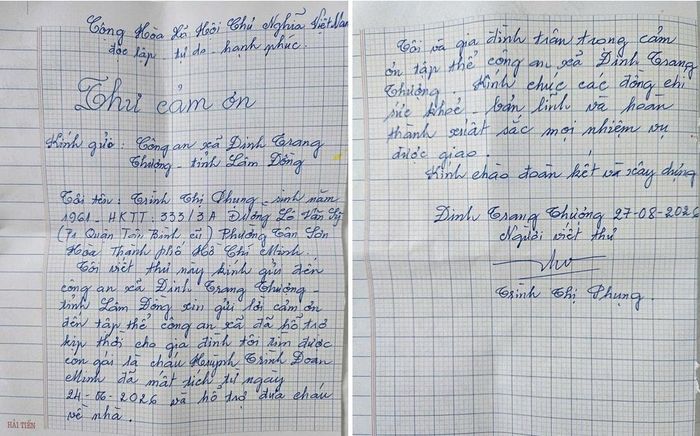 Công Hòa Xã Hôi Chủ Nghĩa Việt Nam
độc lập - tự do - hạnh phúc.
Thư cảm ơn
Kính gửi : Công an xã Đinh Trang
Thượng - tỉnh Lâm Đồng
Tôi tên : Trịnh Thị Phụng - sinh năm
1961 - HKTT : 333/3A Đường Lê Văn Sỹ
Quân Tân Bình cũ) Phường Tân Sơn
Hòa Thành phố Hồ Chí Minh.
Tôi viết thư này kính gửi đến
công an xã Đinh Trang Thượng -
tỉnh Lâm Đồng xin gửi lời cảm ơn
đến tập thể công an xã đã hỗ trợ
kịp thời cho gia đình tôi tìm được
con gái là cháu Huỳnh Trịnh Đoan
Minh đã mất tích từ ngày
24-06-2026 và hỗ trợ đưa cháu
về nhà.
HẢI TIẾN
Tôi và gia đình trân trọng cảm
ơn tập thể công an xã Đinh Trang
Thượng. Kính chúc các đồng chí
sức khoẻ - bản lĩnh và hoàn
thành xuất sắc mọi nhiệm vụ
được giao.
Kính chào đoàn kết và xây dựng
Đinh Trang Thượng 27-08-2026
Người viết thư
Trịnh Thị Phụng.